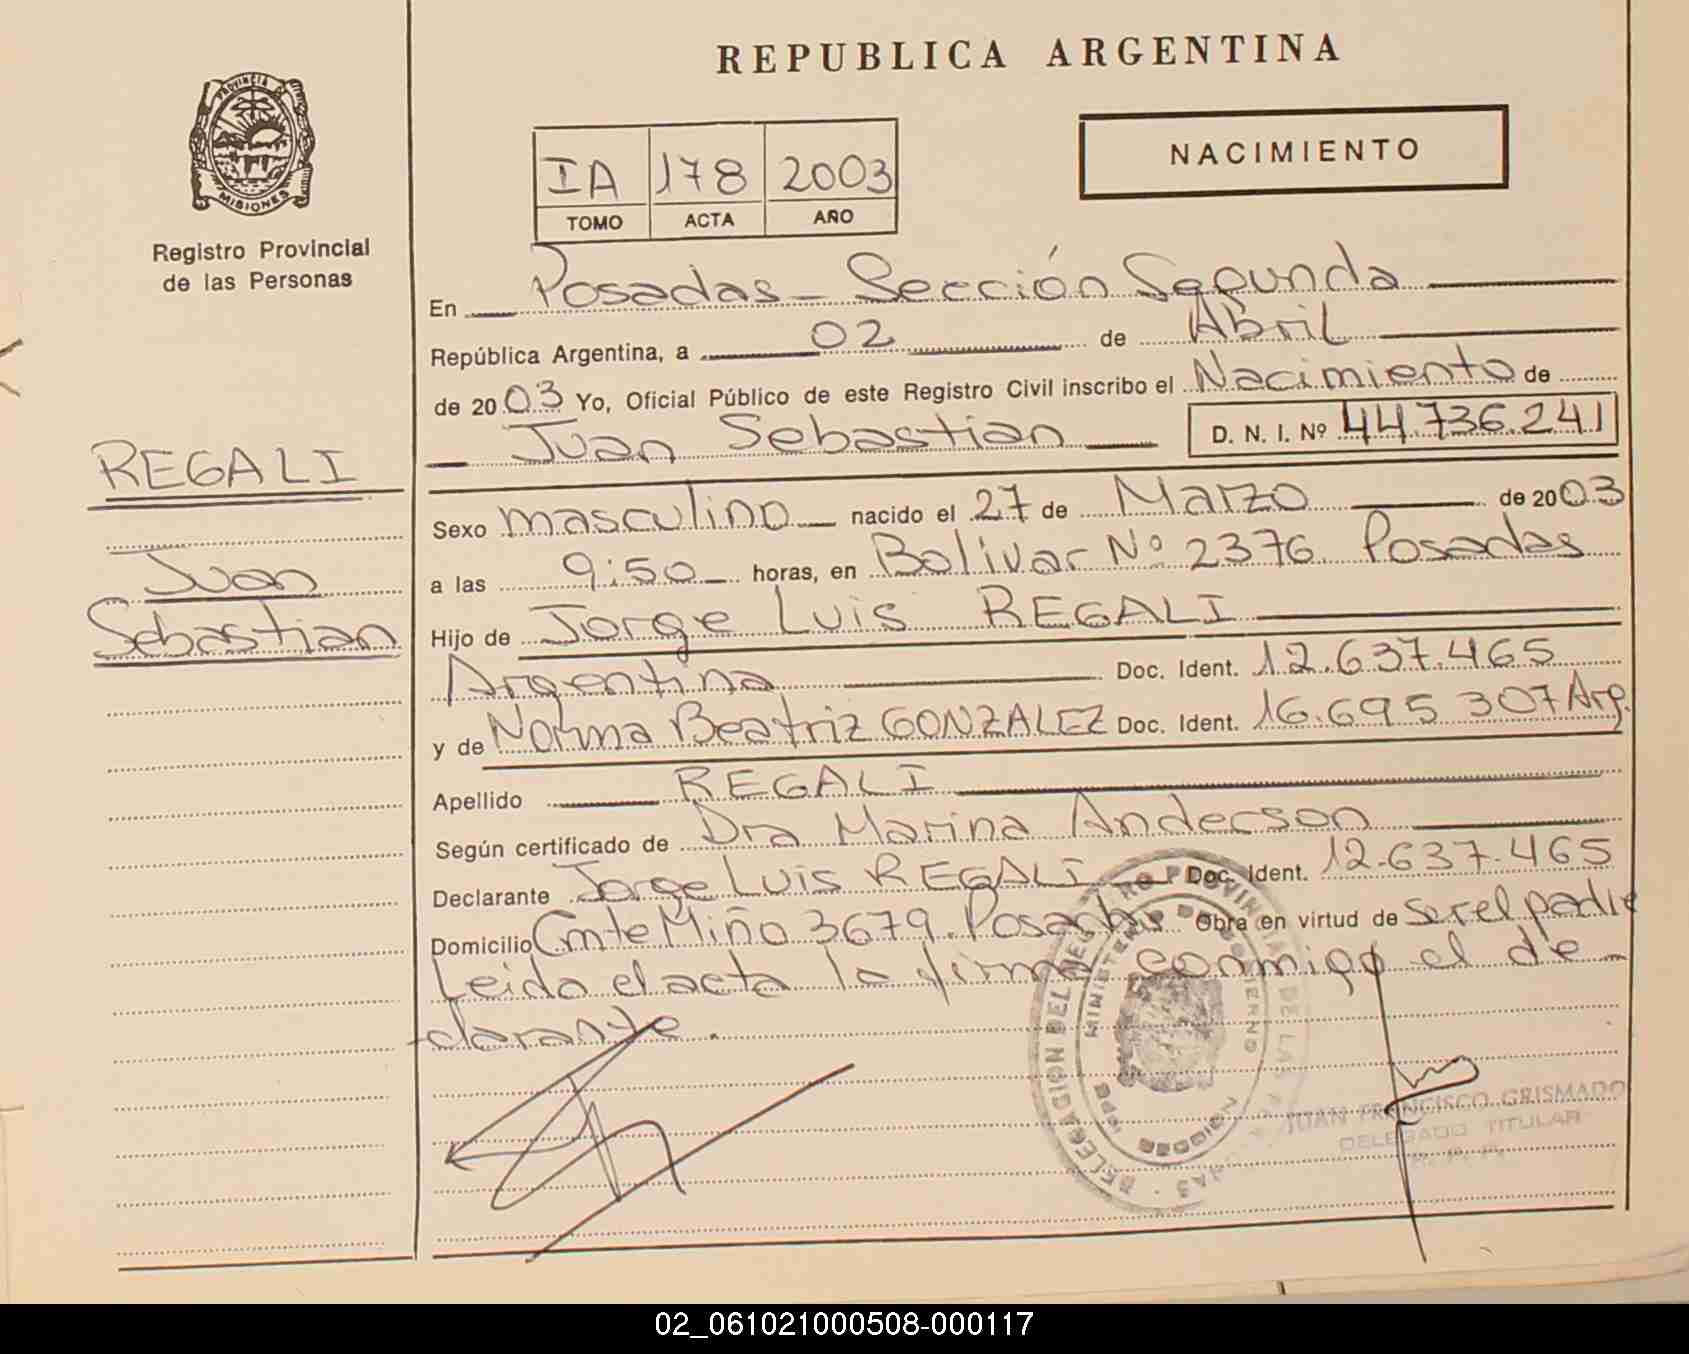 REPUBLICA ARGENTINA
PROVINCIA DE
MISIONES
Registro Provincial
de las Personas
IA 178 2003
TOMO ACTA AÑO
NACIMIENTO
En Posadas - Sección Segunda
República Argentina, a 02 de Abril
de 2003 Yo, Oficial Público de este Registro Civil inscribo el Nacimiento de
Juan Sebastian D. N. I. Nº 44.736.241
REGALI
Juan
Sebastian
Sexo masculino nacido el 27 de Marzo de 2003
a las 9:50 horas, en Bolivar Nº 2376. Posadas
Hijo de Jorge Luis REGALI
Argentina Doc. Ident. 12.637.465
y de Norma Beatriz GONZALEZ Doc. Ident. 16.695 307 Arg.
Apellido REGALI
Según certificado de Dra Marina Anderson
Declarante Jorge Luis REGALI Doc. Ident. 12.637.465
Domicilio Cmte Miño 3679. Posadas Obra en virtud de ser el padre
Leido el acta la firma conmigo el de-
clarante.
MINISTERIO DE GOBIERNO
JUAN FRANCISCO GRISMADO
DELEGADO TITULAR
R. P. P.
02_061021000508-000117